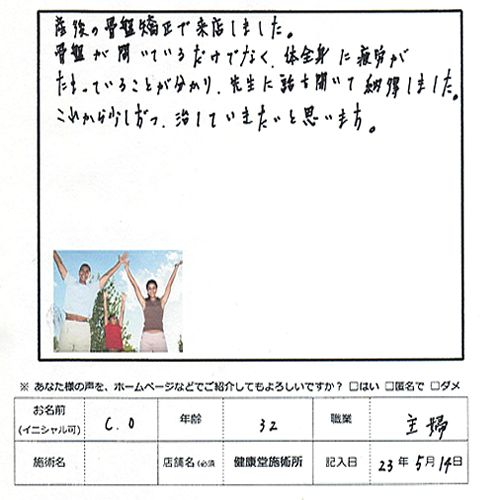 産後の骨盤矯正で来店しました。
骨盤が開いているだけでなく、体全身に疲労が
たまっていることが分かり、先生に話を聞いて納得しました。
これから少しずつ、治していきたいと思います。
※ あなた様の声を、ホームページなどでご紹介してもよろしいですか？ □はい □匿名で □ダメ
お名前 (イニシャル可) C.O 年齢 32 職業 主婦
施術名 店舗名(必須 健康堂施術所 記入日 23年 5月 14日